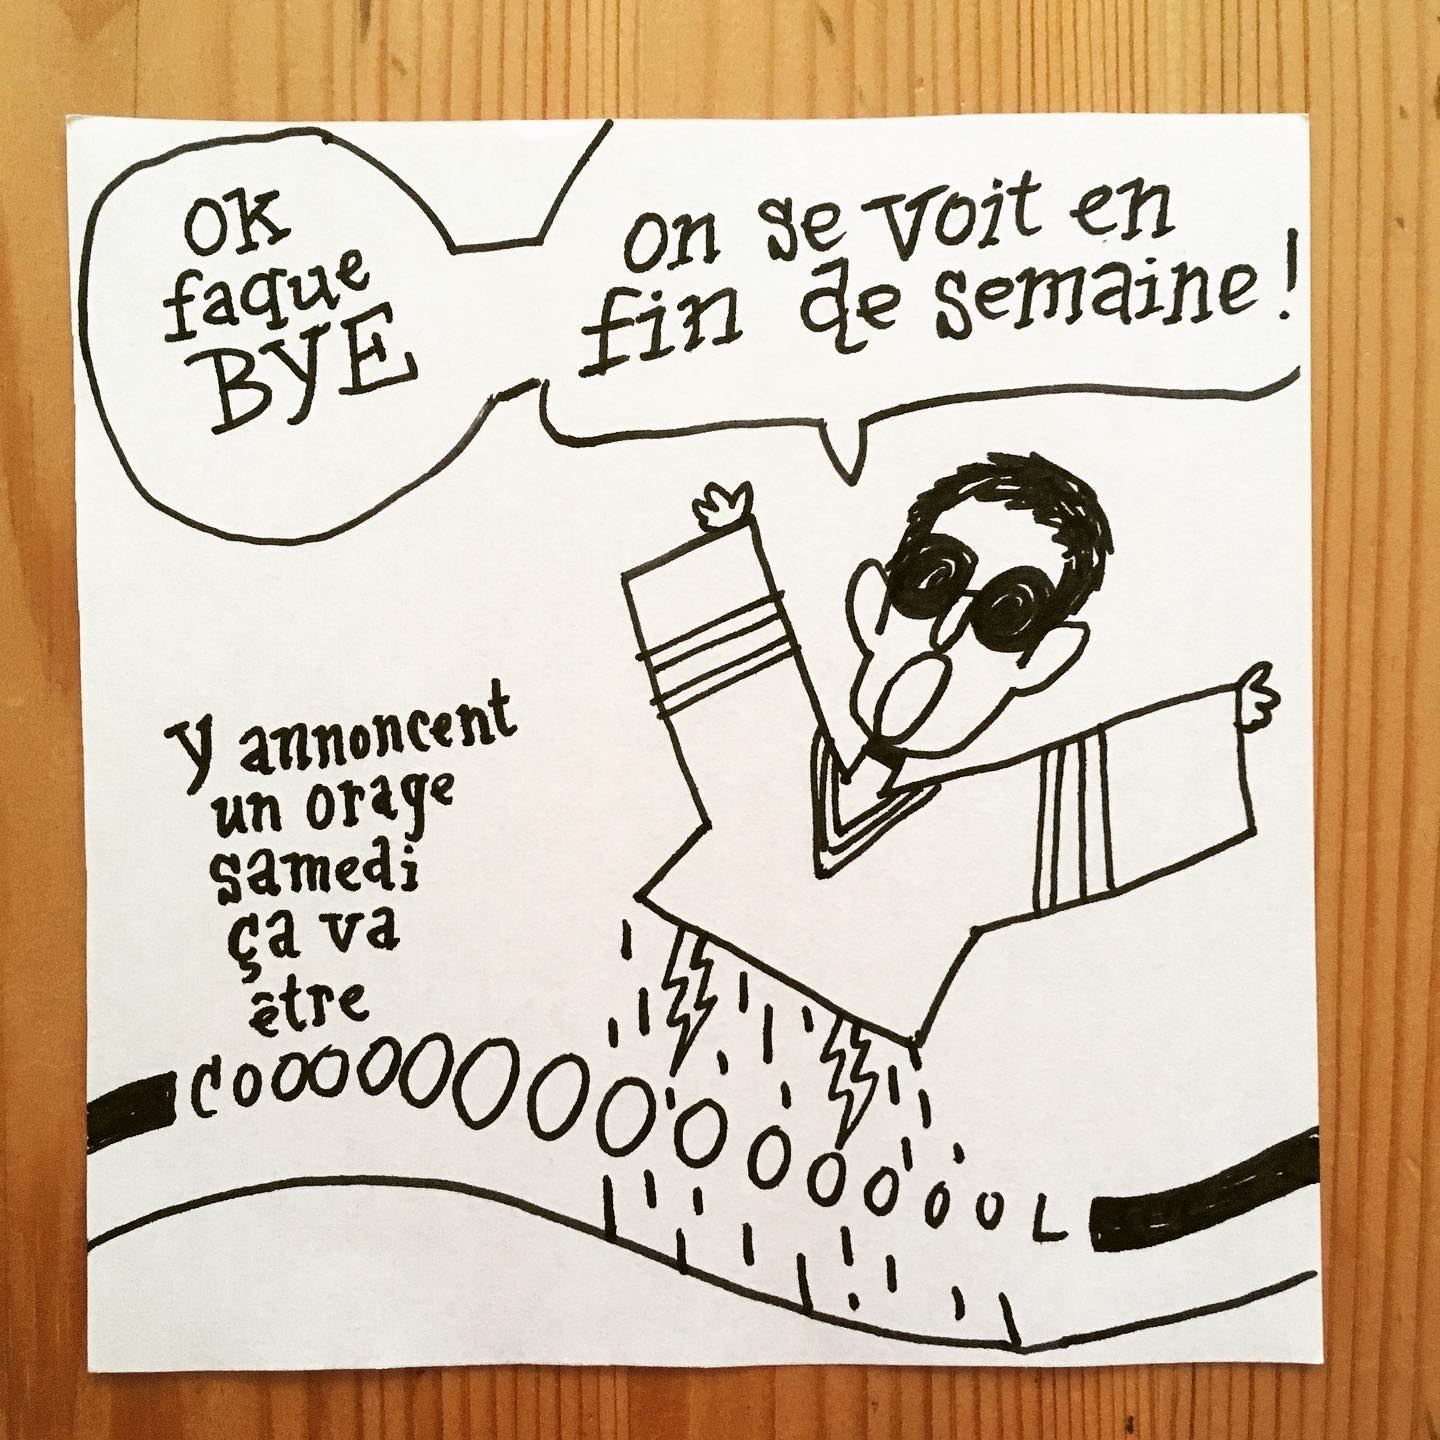 OK
faque
BYE
on se voit en
fin de semaine!
y annoncent
un orage
samedi
ça va
être
COOOOOOOOOOOOOOOL